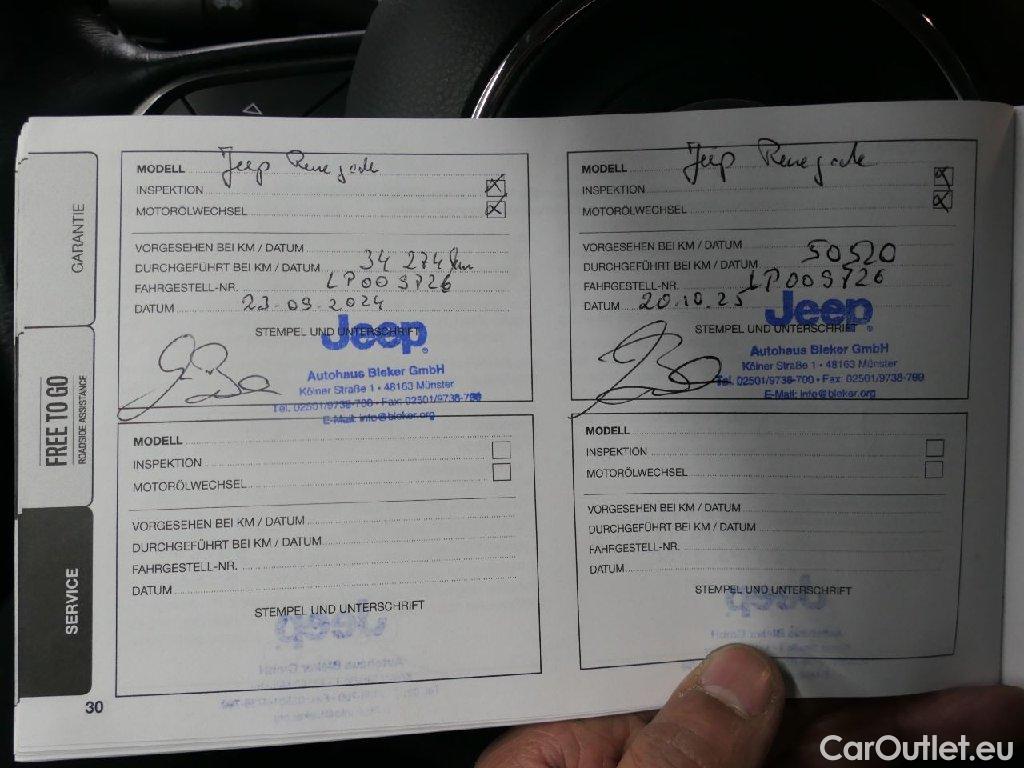 GARANTIE
FREE TO GO
ROADSIDE ASSISTANCE
SERVICE
30
MODELL Jeep Renegade
INSPEKTION
MOTORÖLWECHSEL
VORGESEHEN BEI KM / DATUM
DURCHGEFÜHRT BEI KM / DATUM 34 274 km
FAHRGESTELL-NR. LP009726
DATUM 23-09-2024
STEMPEL UND UNTERSCHRIFT
Jeep
Autohaus Bleker GmbH
Kölner Straße 1 • 48163 Münster
Tel. 02501/9738-700 • Fax: 02501/9738-799
E-Mail: info@bleker.org
MODELL Jeep Renegade
INSPEKTION
MOTORÖLWECHSEL
VORGESEHEN BEI KM / DATUM
DURCHGEFÜHRT BEI KM / DATUM 50520
FAHRGESTELL-NR. LP009726
DATUM 20.10.25
STEMPEL UND UNTERSCHRIFT
Jeep
Autohaus Bleker GmbH
Kölner Straße 1 • 48163 Münster
Tel. 02501/9738-700 • Fax: 02501/9738-799
E-Mail: info@bleker.org
MODELL
INSPEKTION
MOTORÖLWECHSEL
VORGESEHEN BEI KM / DATUM
DURCHGEFÜHRT BEI KM / DATUM
FAHRGESTELL-NR.
DATUM
STEMPEL UND UNTERSCHRIFT
MODELL
INSPEKTION
MOTORÖLWECHSEL
VORGESEHEN BEI KM / DATUM
DURCHGEFÜHRT BEI KM / DATUM
FAHRGESTELL-NR.
DATUM
STEMPEL UND UNTERSCHRIFT
CarOutlet.eu